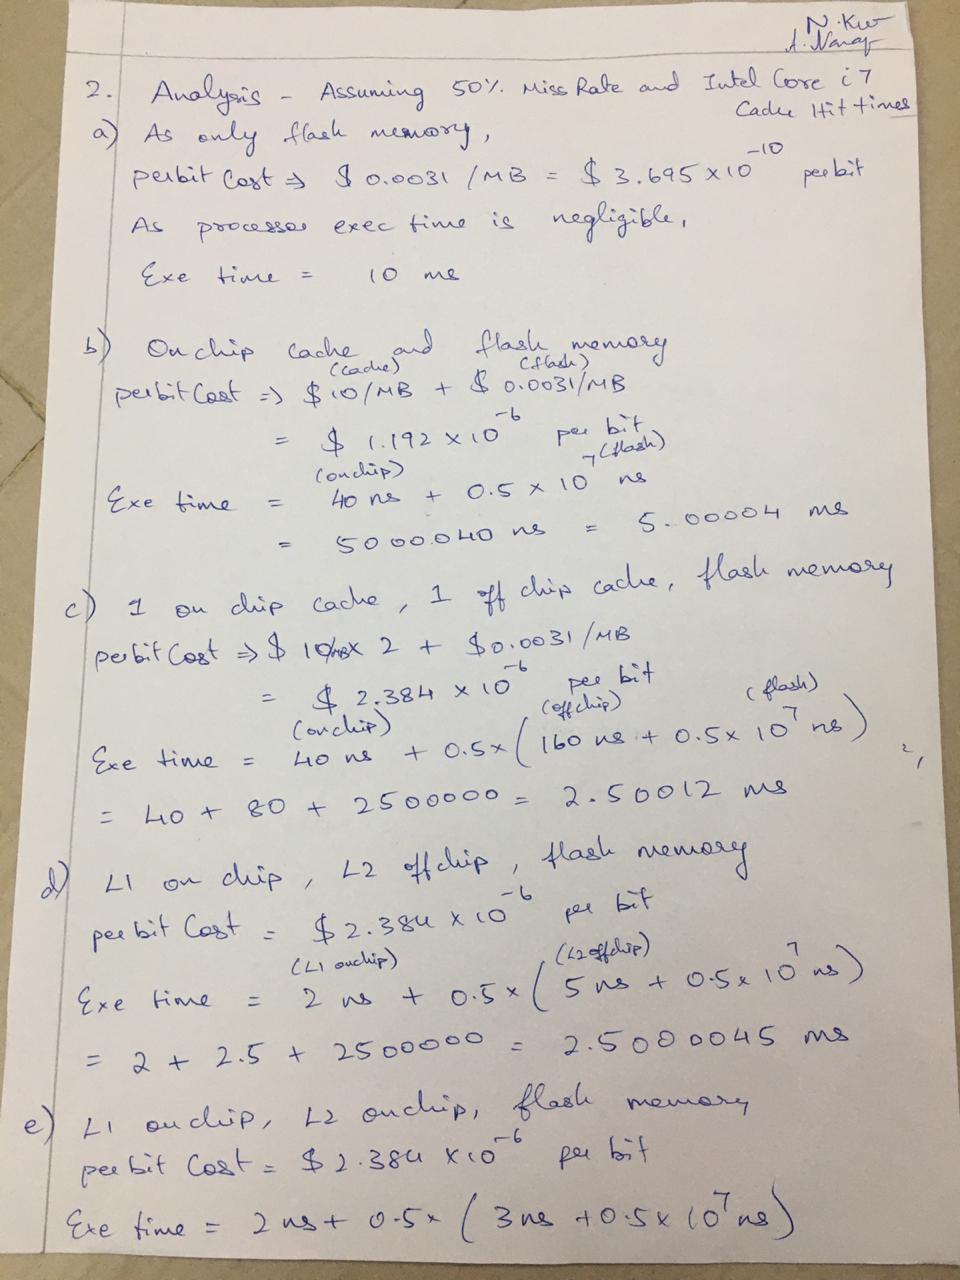 N. Ku
A. Nanag
2. Analysis - Assuming 50% Miss Rate and Intel Core i7
Cache Hit times
a) As only flash memory,
perbit Cost ⇒ $ 0.0031 /MB = $ 3.695 × 10^-10 per bit
As processor exec time is negligible,
Exe time = 10 ms
b) On chip cache and flash memory
(cache) (flash)
perbit Cost ⇒ $ 10/MB + $ 0.0031/MB
= $ 1.192 × 10^-6 per bit
(onchip) (flash)
Exe time = 40 ns + 0.5 × 10^7 ns
= 5000040 ns = 5.00004 ms
c) 1 on chip cache, 1 off chip cache, flash memory
perbit Cost ⇒ $ 10/MB × 2 + $0.0031/MB
= $ 2.384 × 10^-6 per bit
(onchip) (offchip) (flash)
Exe time = 40 ns + 0.5× (160 ns + 0.5× 10^7 ns)
= 40 + 80 + 2500000 = 2.50012 ms
d) L1 on chip, L2 offchip, flash memory
per bit Cost = $2.384 × 10^-6 per bit
(L1 onchip) (L2 offchip)
Exe time = 2 ns + 0.5× (5 ns + 0.5× 10^7 ns)
= 2 + 2.5 + 2500000 = 2.5000045 ms
e) L1 onchip, L2 onchip, flash memory
per bit Cost = $ 2.384 ×10^-6 per bit
Exe time = 2 ns + 0.5× (3 ns + 0.5 × 10^7 ns)